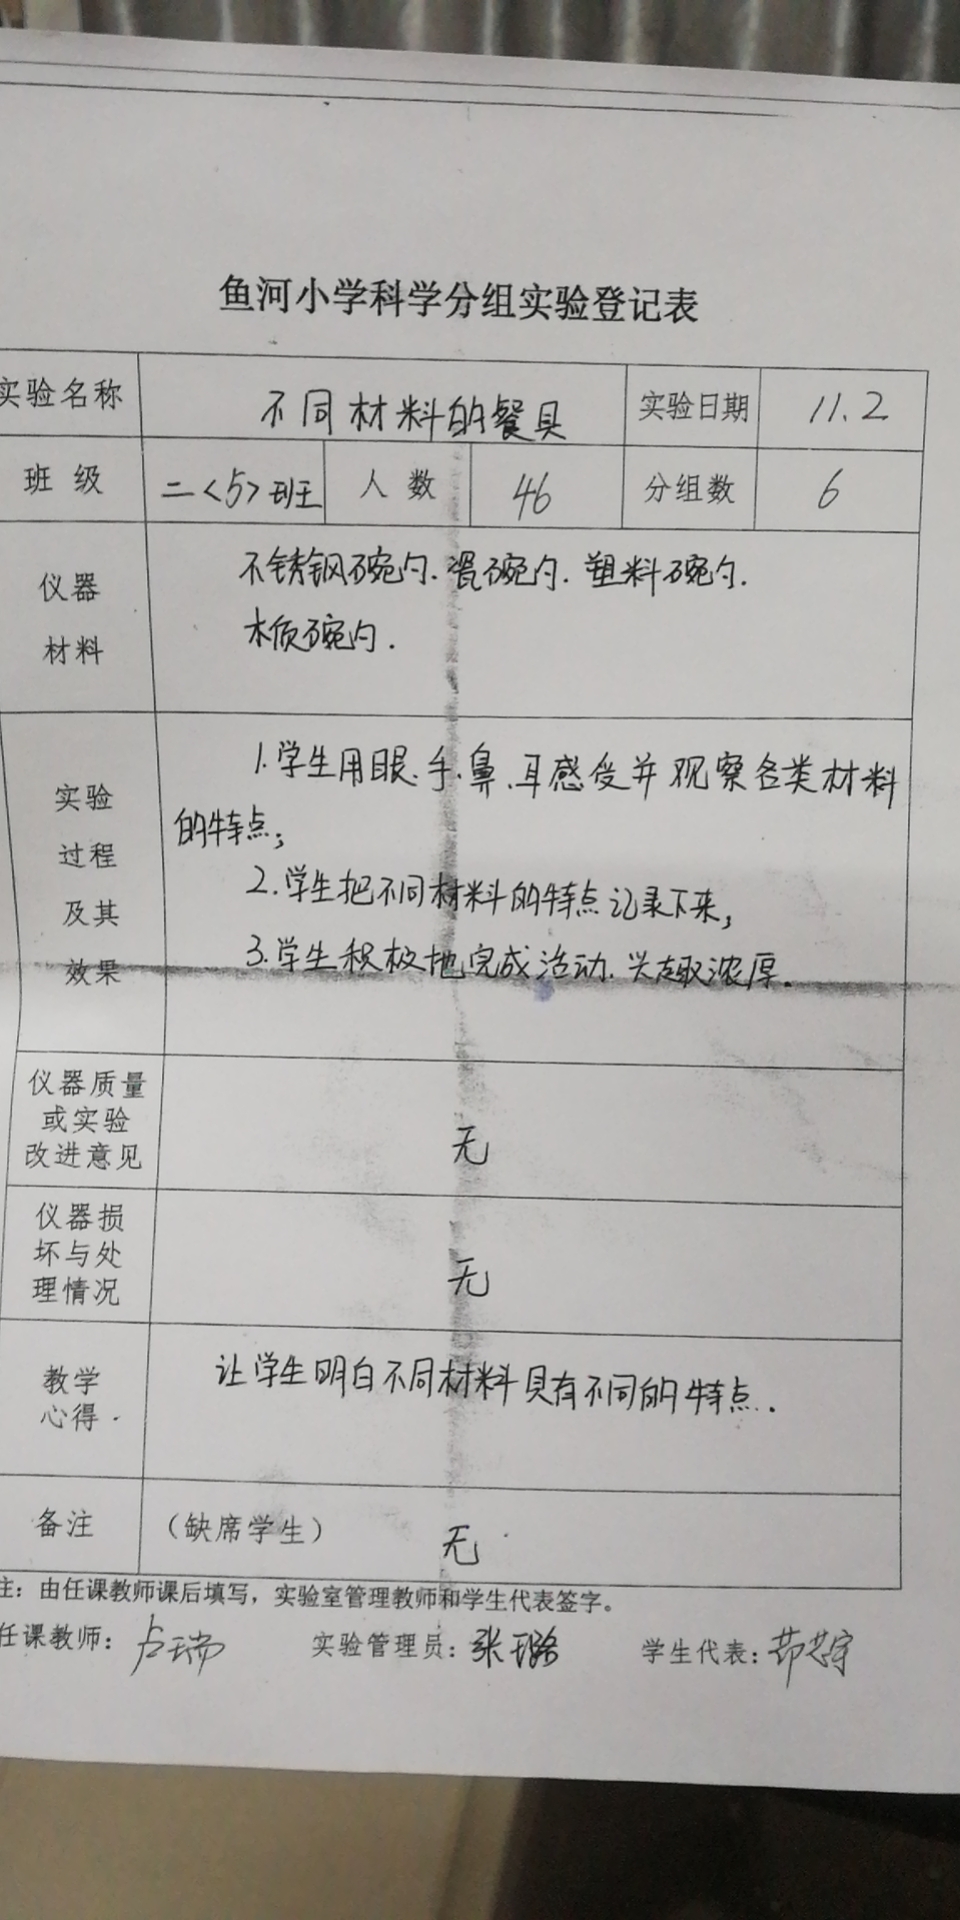 鱼河小学科学分组实验登记表
实验名称 不同材料的餐具 实验日期 11.2
班 级 二<5>班 人 数 46 分组数 6
仪器
材料
不锈钢碗勺.瓷碗勺.塑料碗勺.
木质碗勺.
实验
过程
及其
效果
1.学生用眼.手.鼻.耳感受并观察各类材料
的特点;
2.学生把不同材料的特点记录下来,
3.学生积极地完成活动.兴趣浓厚.
仪器质量
或实验
改进意见
无
仪器损
坏与处
理情况
无
教学
心得.
让学生明白不同材料具有不同的特点.
备注 (缺席学生) 无
注:由任课教师课后填写,实验室管理教师和学生代表签字。
任课教师: 卢瑞 实验管理员: 张璐 学生代表: